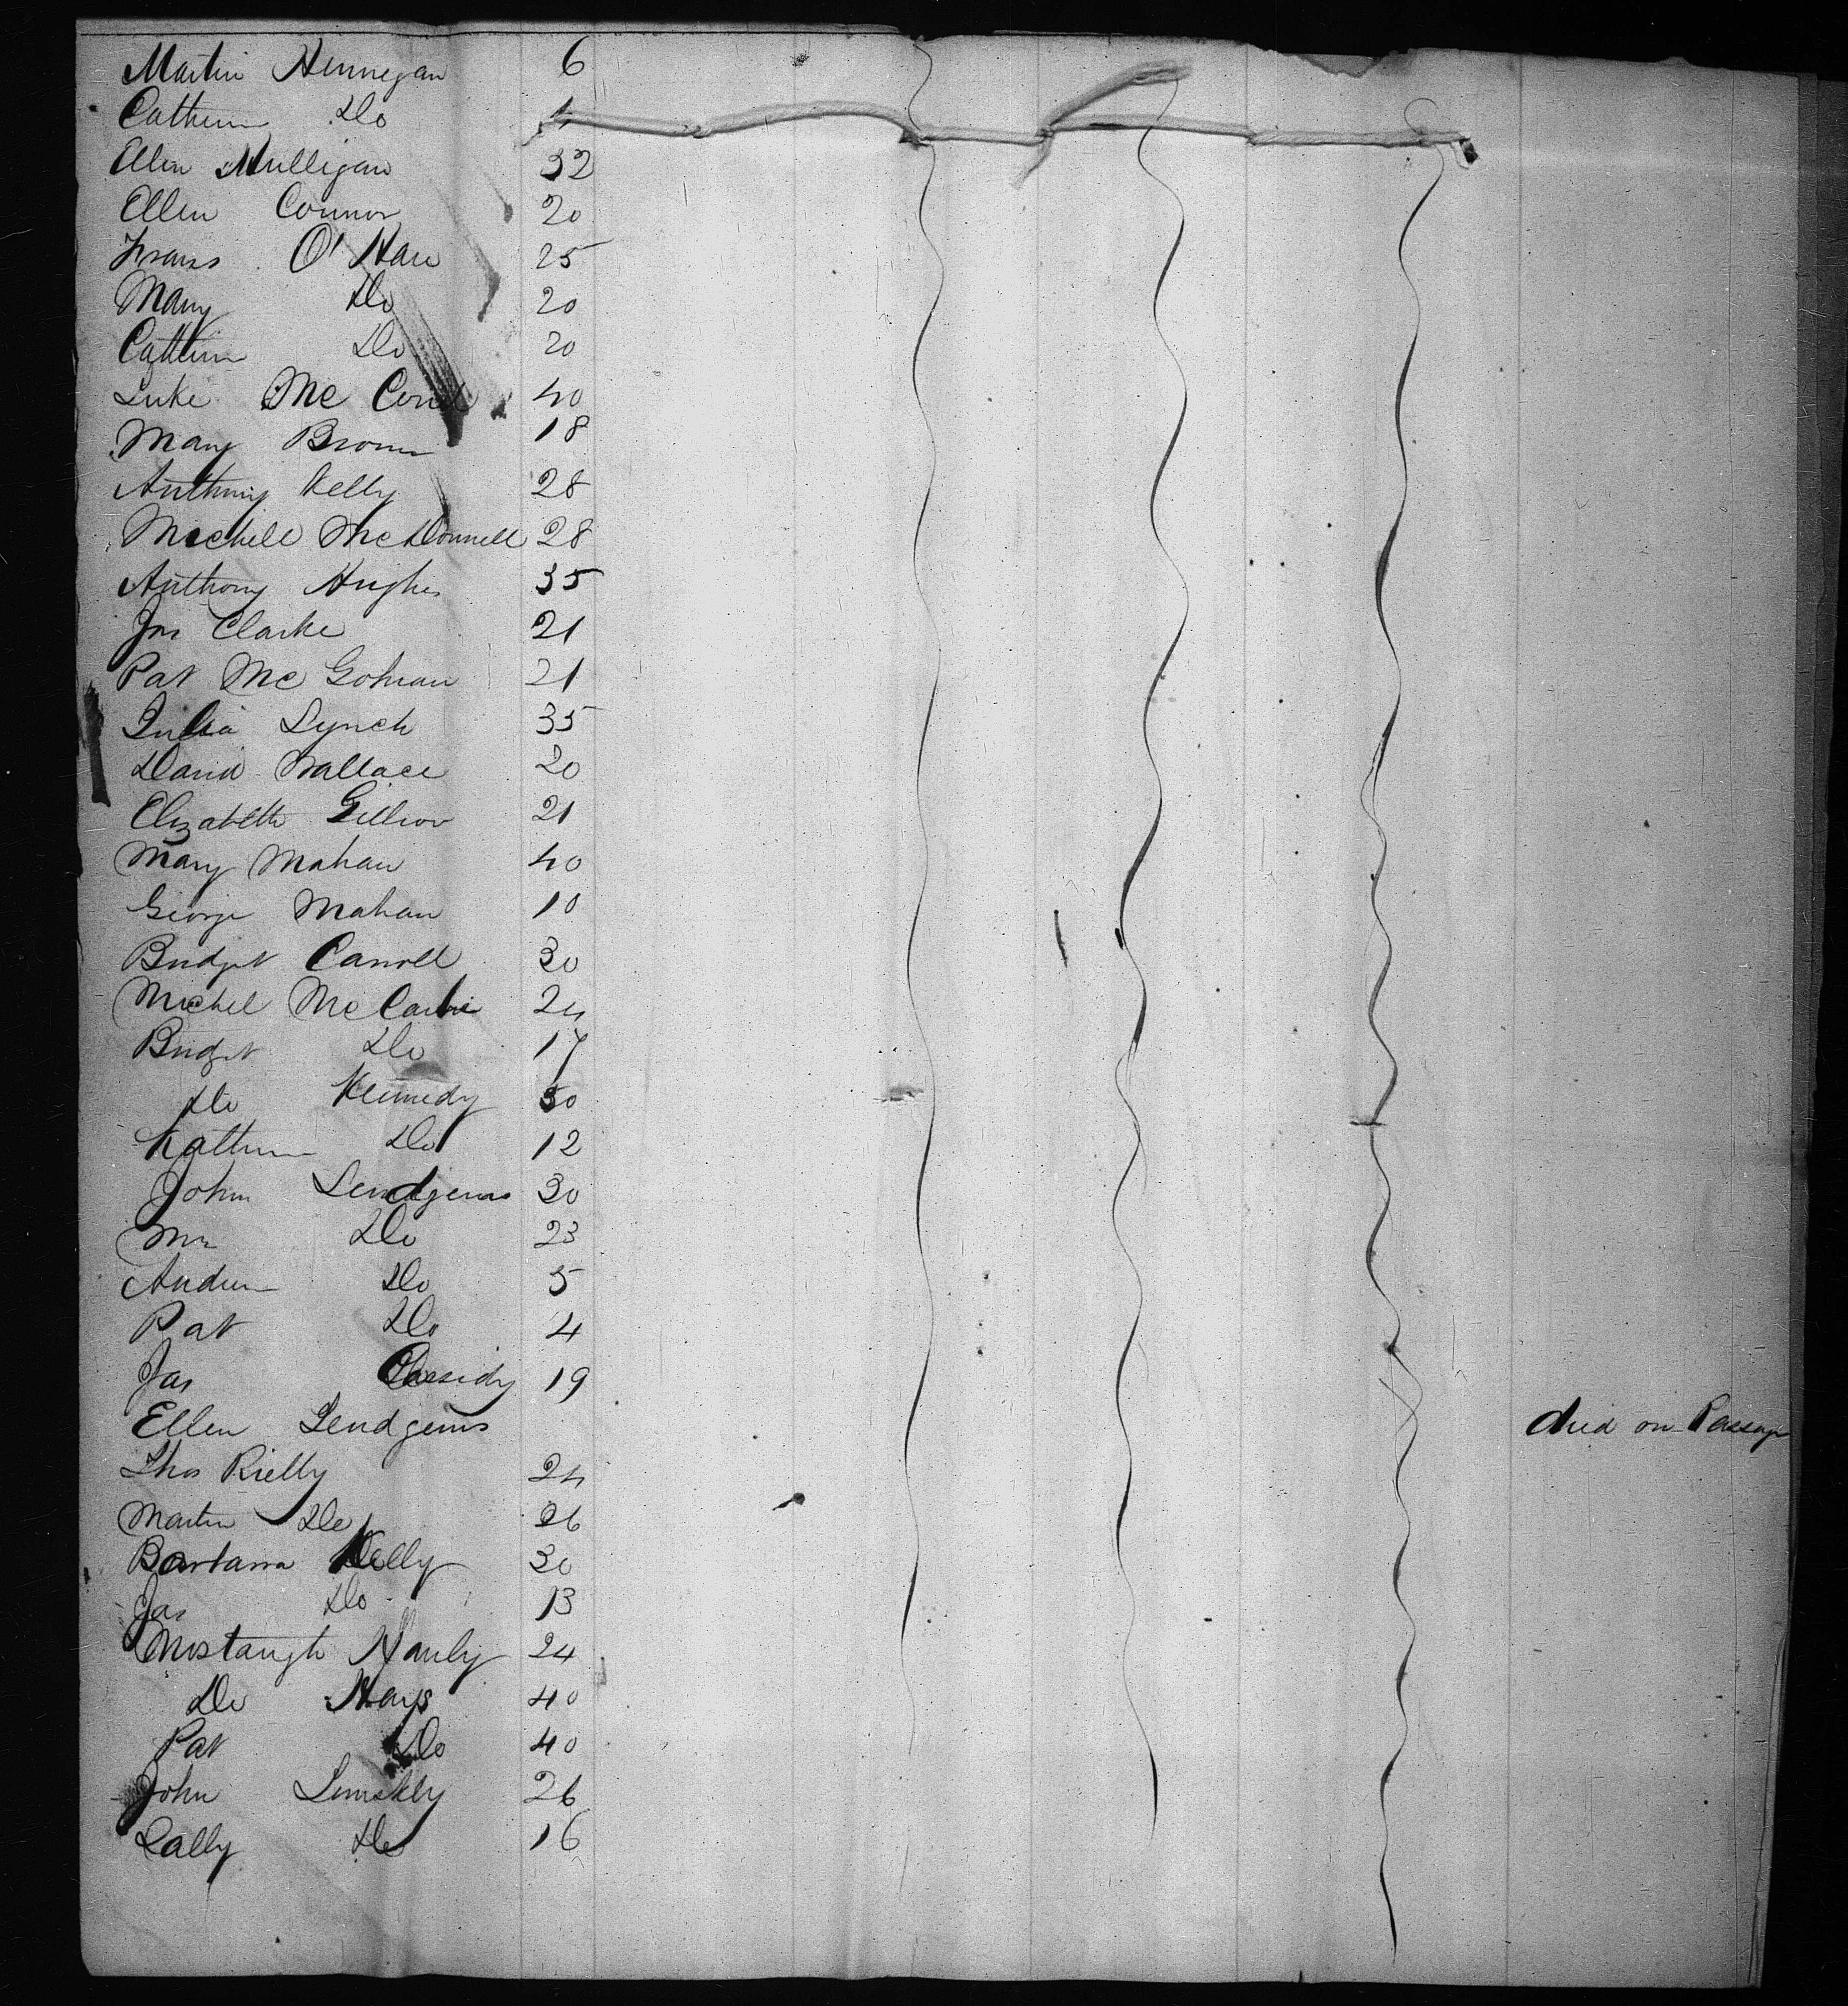 Martin Hennegan 6
Cathern Do
Ellen Mulligan 32
Ellen Connor 20
Frans O'Hare 25
Mary Do 20
Cathern Do 20
Luke Mc 40
Mary Brown 18
Anthony Kelly 28
Michell McDonnell 28
Anthony Hughes 35
Jas Clarke 21
Pat Mc Gohran 21
Julia Lynch 35
David Wallace 20
Elizabeth 21
Mary Mahan 40
George Mahan 10
Bridget Carroll 30
Michel Mc 24
Bridget Do 17
Do Kennedy 30
Kathern Do 12
John Lendgens 30
Mrs Do 23
Andrew Do 5
Pat Do 4
Jas Cassidy 19
Ellen Lendgens died on Passage
Thos Rielly 24
Martin Do 26
Barbara Kelly 30
Jas Do 13
Hanly 24
Do Hays 40
Pat Do 40
John 26
Lally Do 16